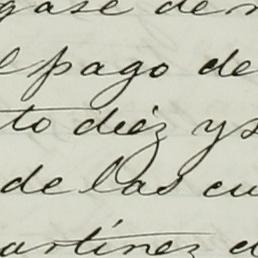 gase de
l pago de
to diéz y
de las cu
artínez d